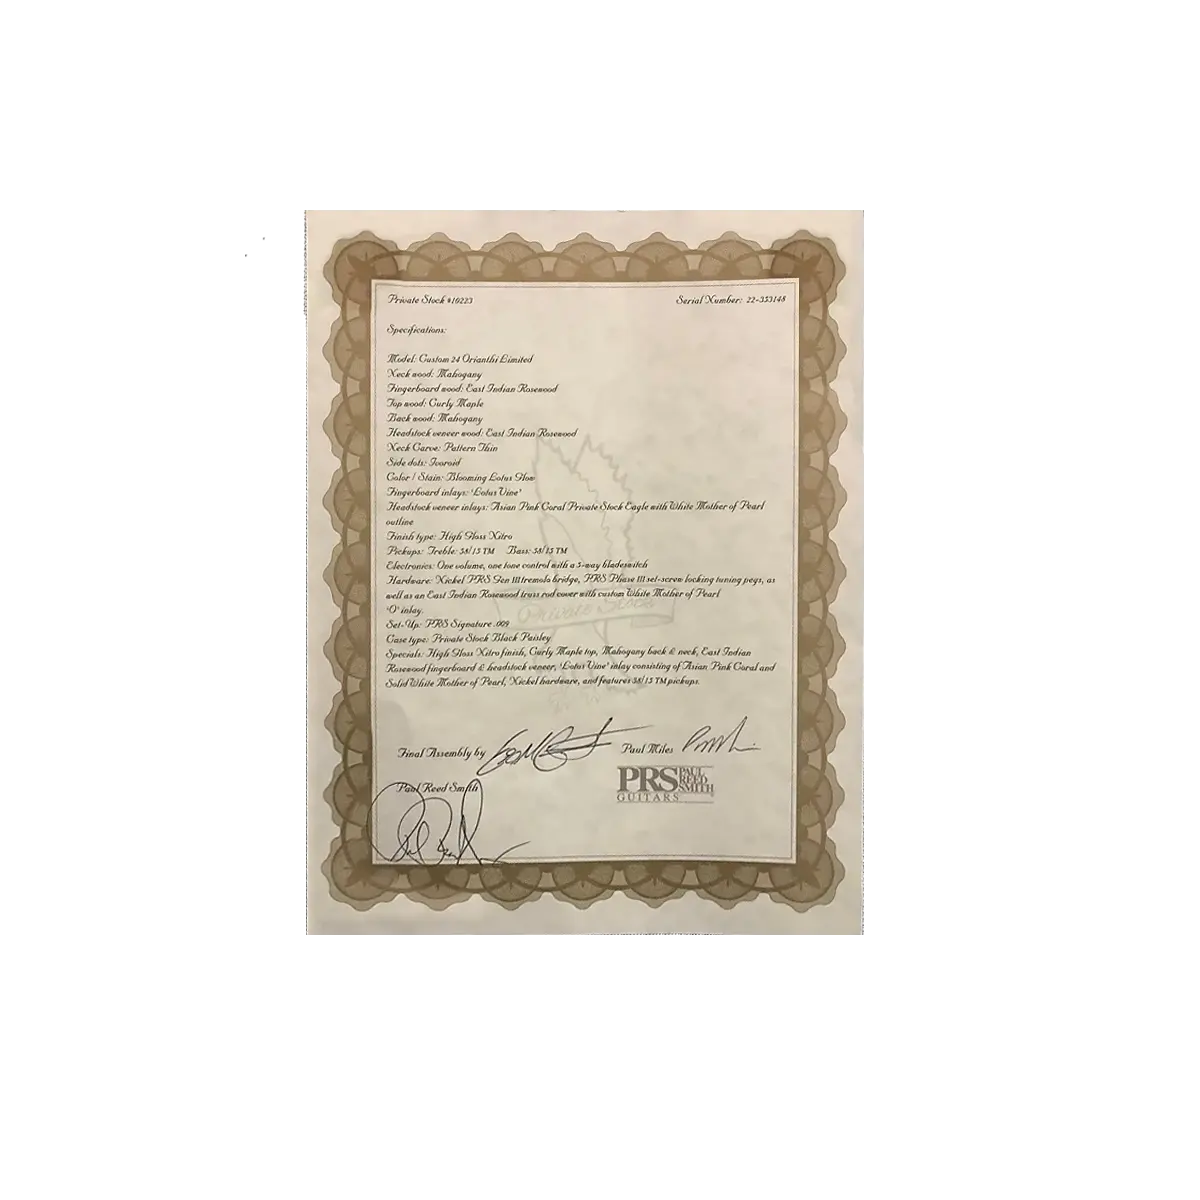 Private Stock #10223
Serial Number: 22-353148
Specifications:
Model: Custom 24 Orianthi Limited
Neck wood: Mahogany
Fingerboard wood: East Indian Rosewood
Top wood: Curly Maple
Back wood: Mahogany
Headstock veneer wood: East Indian Rosewood
Neck Carve: Pattern Thin
Side dots: Ivoroid
Color / Stain: Blooming Lotus Glow
Fingerboard inlays: 'Lotus Vine'
Headstock veneer inlays: Asian Pink Coral Private Stock Eagle with White Mother of Pearl
outline
Finish type: High Gloss Nitro
Pickups: Treble: 58/15 TM Bass: 58/15 TM
Electronics: One volume, one tone control with a 5-way bladeswitch
Hardware: Nickel PRS Gen III tremolo bridge, PRS Phase III set-screw locking tuning pegs, as
well as an East Indian Rosewood truss rod cover with custom White Mother of Pearl
'O' inlay.
Set-Up: PRS Signature .009
Case type: Private Stock Black Paisley
Specials: High Gloss Nitro finish, Curly Maple top, Mahogany back & neck, East Indian
Rosewood fingerboard & headstock veneer, 'Lotus Vine' inlay consisting of Asian Pink Coral and
Solid White Mother of Pearl, Nickel hardware, and features 58/15 TM pickups.
Private Stock
Final Assembly by
Paul Miles
Paul Reed Smith
PRS PAUL REED SMITH
GUITARS